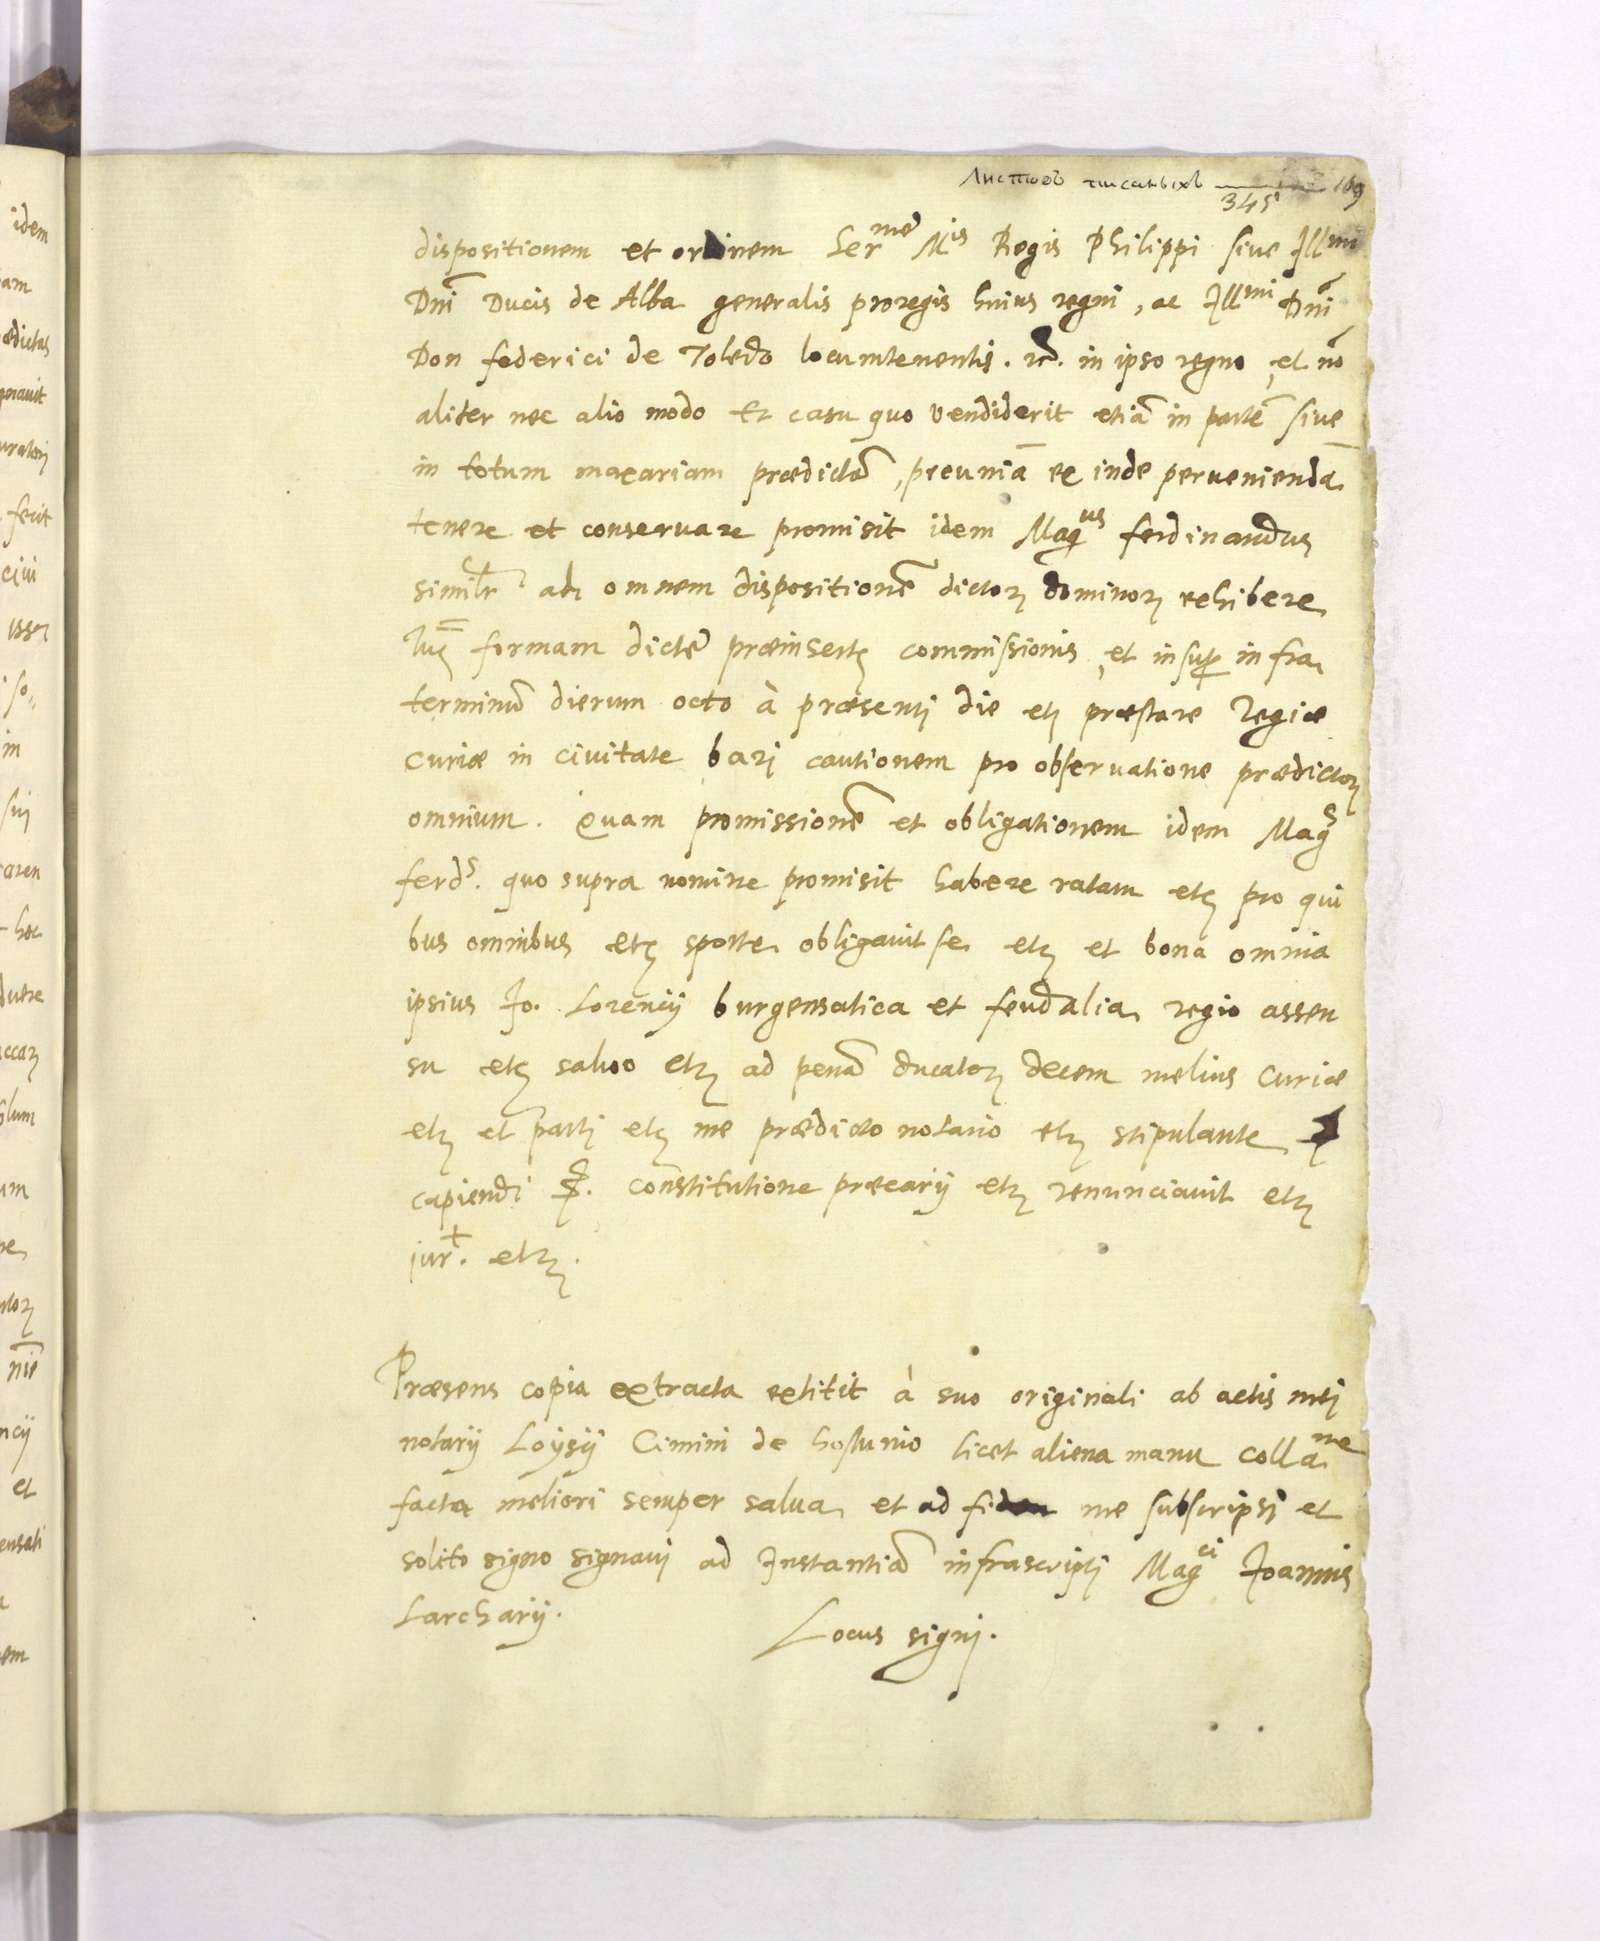 Листовъ писаныхъ 345 169
dispositionem et ordinem Ser^me M^is Regis Philippi siue Ill^mi
Dnī Ducis de Alba generalis proregis huius regni, ac Ill^mi Dnī
Don federici de Toledo locumtenentis. rē. in ipso regno, et nō
aliter nec alio modo Et casu quo vendiderit etiā in partē siue
in totum maxariam prædictā, pecuniā ex inde perueniendā
tenere et conseruare promisit idem Mag^us ferdinandus
similr ad omnem dispositionē dictoꝝ dominoꝝ exhibere
iux formam dictę præinsertę commissionis, et insuꝑ infra
terminū dierum octo à præsenti die etꝫ præstare Regiæ
curiæ in ciuitate barj cautionem pro obseruatione prædictoꝝ
omnium. Quam promissionē et obligationem idem Mag^s
ferd^s. quo supra nomine promisit habere ratam etꝫ pro qui
bus omnibus etꝫ sponte obligauit se etꝫ et bona omnia
ipsius Jo. Lorencij burgensatica et feudalia regio assen
su etꝫ saluo etꝫ ad penā ducatoꝝ decem melius Curiæ
etꝫ et partj etꝫ me prædicto notario etꝫ stipulante
capiendi ꝑ. constitutione præcarij etꝫ renunciauit etꝫ
jur^t. etꝫ.
Præsens copia extracta extitit à suo originali ab actis mej
notarij Loysij Cimini de hostunio licet aliena manu colla^ne
facta meliori semper salua et ad fidem me subscripsj et
solito signo signauj ad Instantiā infrascriptj Mag^ci Joannis
Larcharij.
Locus signj.